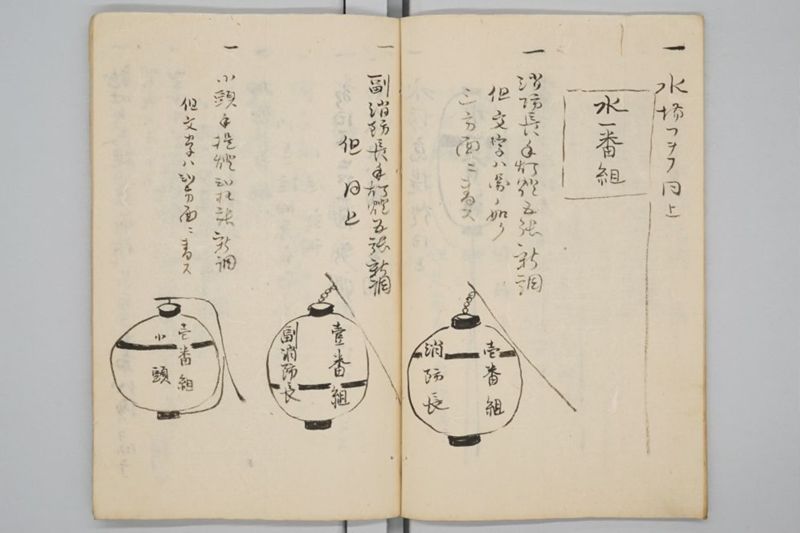 一 水場マヲフ同上
水一番組
一 消防長手灯燈五張新調
但文字ハ図ノ如ク
三方面ニ書ス
壱番組
消防長
一 副消防長手灯燈五張新調
但同上
壹番組
副消防長
一 小頭手提燈 張新調
但文字ハ 方面ニ書ス
壱番組
小頭